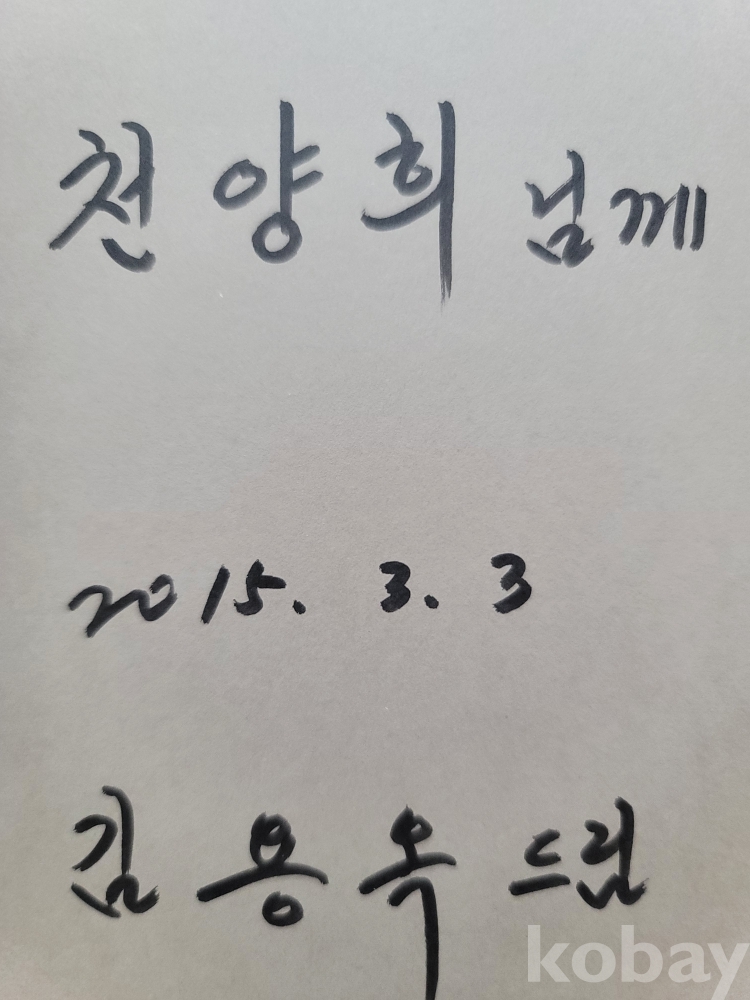 천양희 님께
2015. 3. 3
김용옥 드림
kobay